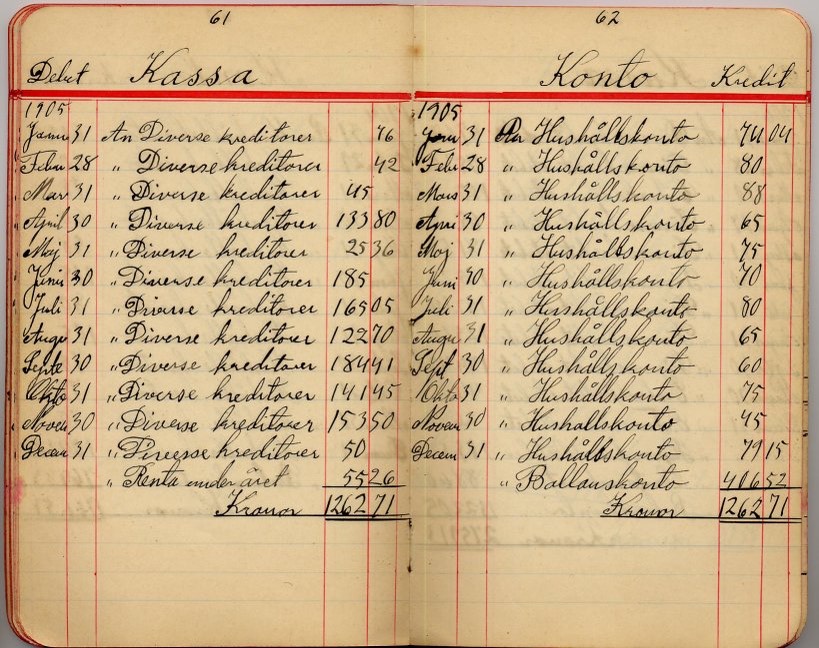 61
Debet Kassa
1905
Janu 31 An Diverse kreditorer 76
Febru 28 " Diverse kreditorer 42
Mar 31 " Diverse kreditorer 45
April 30 " Diverse kreditorer 133 80
Maj 31 " Diverse kreditorer 25 36
Juni 30 " Diverse kreditorer 185
Juli 31 " Diverse kreditorer 165 05
Augu 31 " Diverse kreditorer 122 70
Septe 30 " Diverse kreditorer 184 41
Okto 31 " Diverse kreditorer 141 45
Novem 30 " Diverse kreditorer 153 50
Decem 31 " Diverse kreditorer 50
" Renta under året 55 26
Kronor 1262 71
62
Konto Kredit
1905
Janu 31 An Hushållskonto 74 04
Febr 28 " Hushållskonto 80
Mars 31 " Hushållskonto 88
Apri 30 " Hushållskonto 65
Maj 31 " Hushållskonto 75
Juni 30 " Hushållskonto 70
Juli 31 " Hushållskonto 80
Augu 31 " Hushållskonto 65
Sept 30 " Hushållskonto 60
Okto 31 " Hushållskonto 75
Novem 30 " Hushallskonto 45
Decem 31 " Hushållskonto 79 15
" Ballanskonto 406 52
Kronor 1262 71